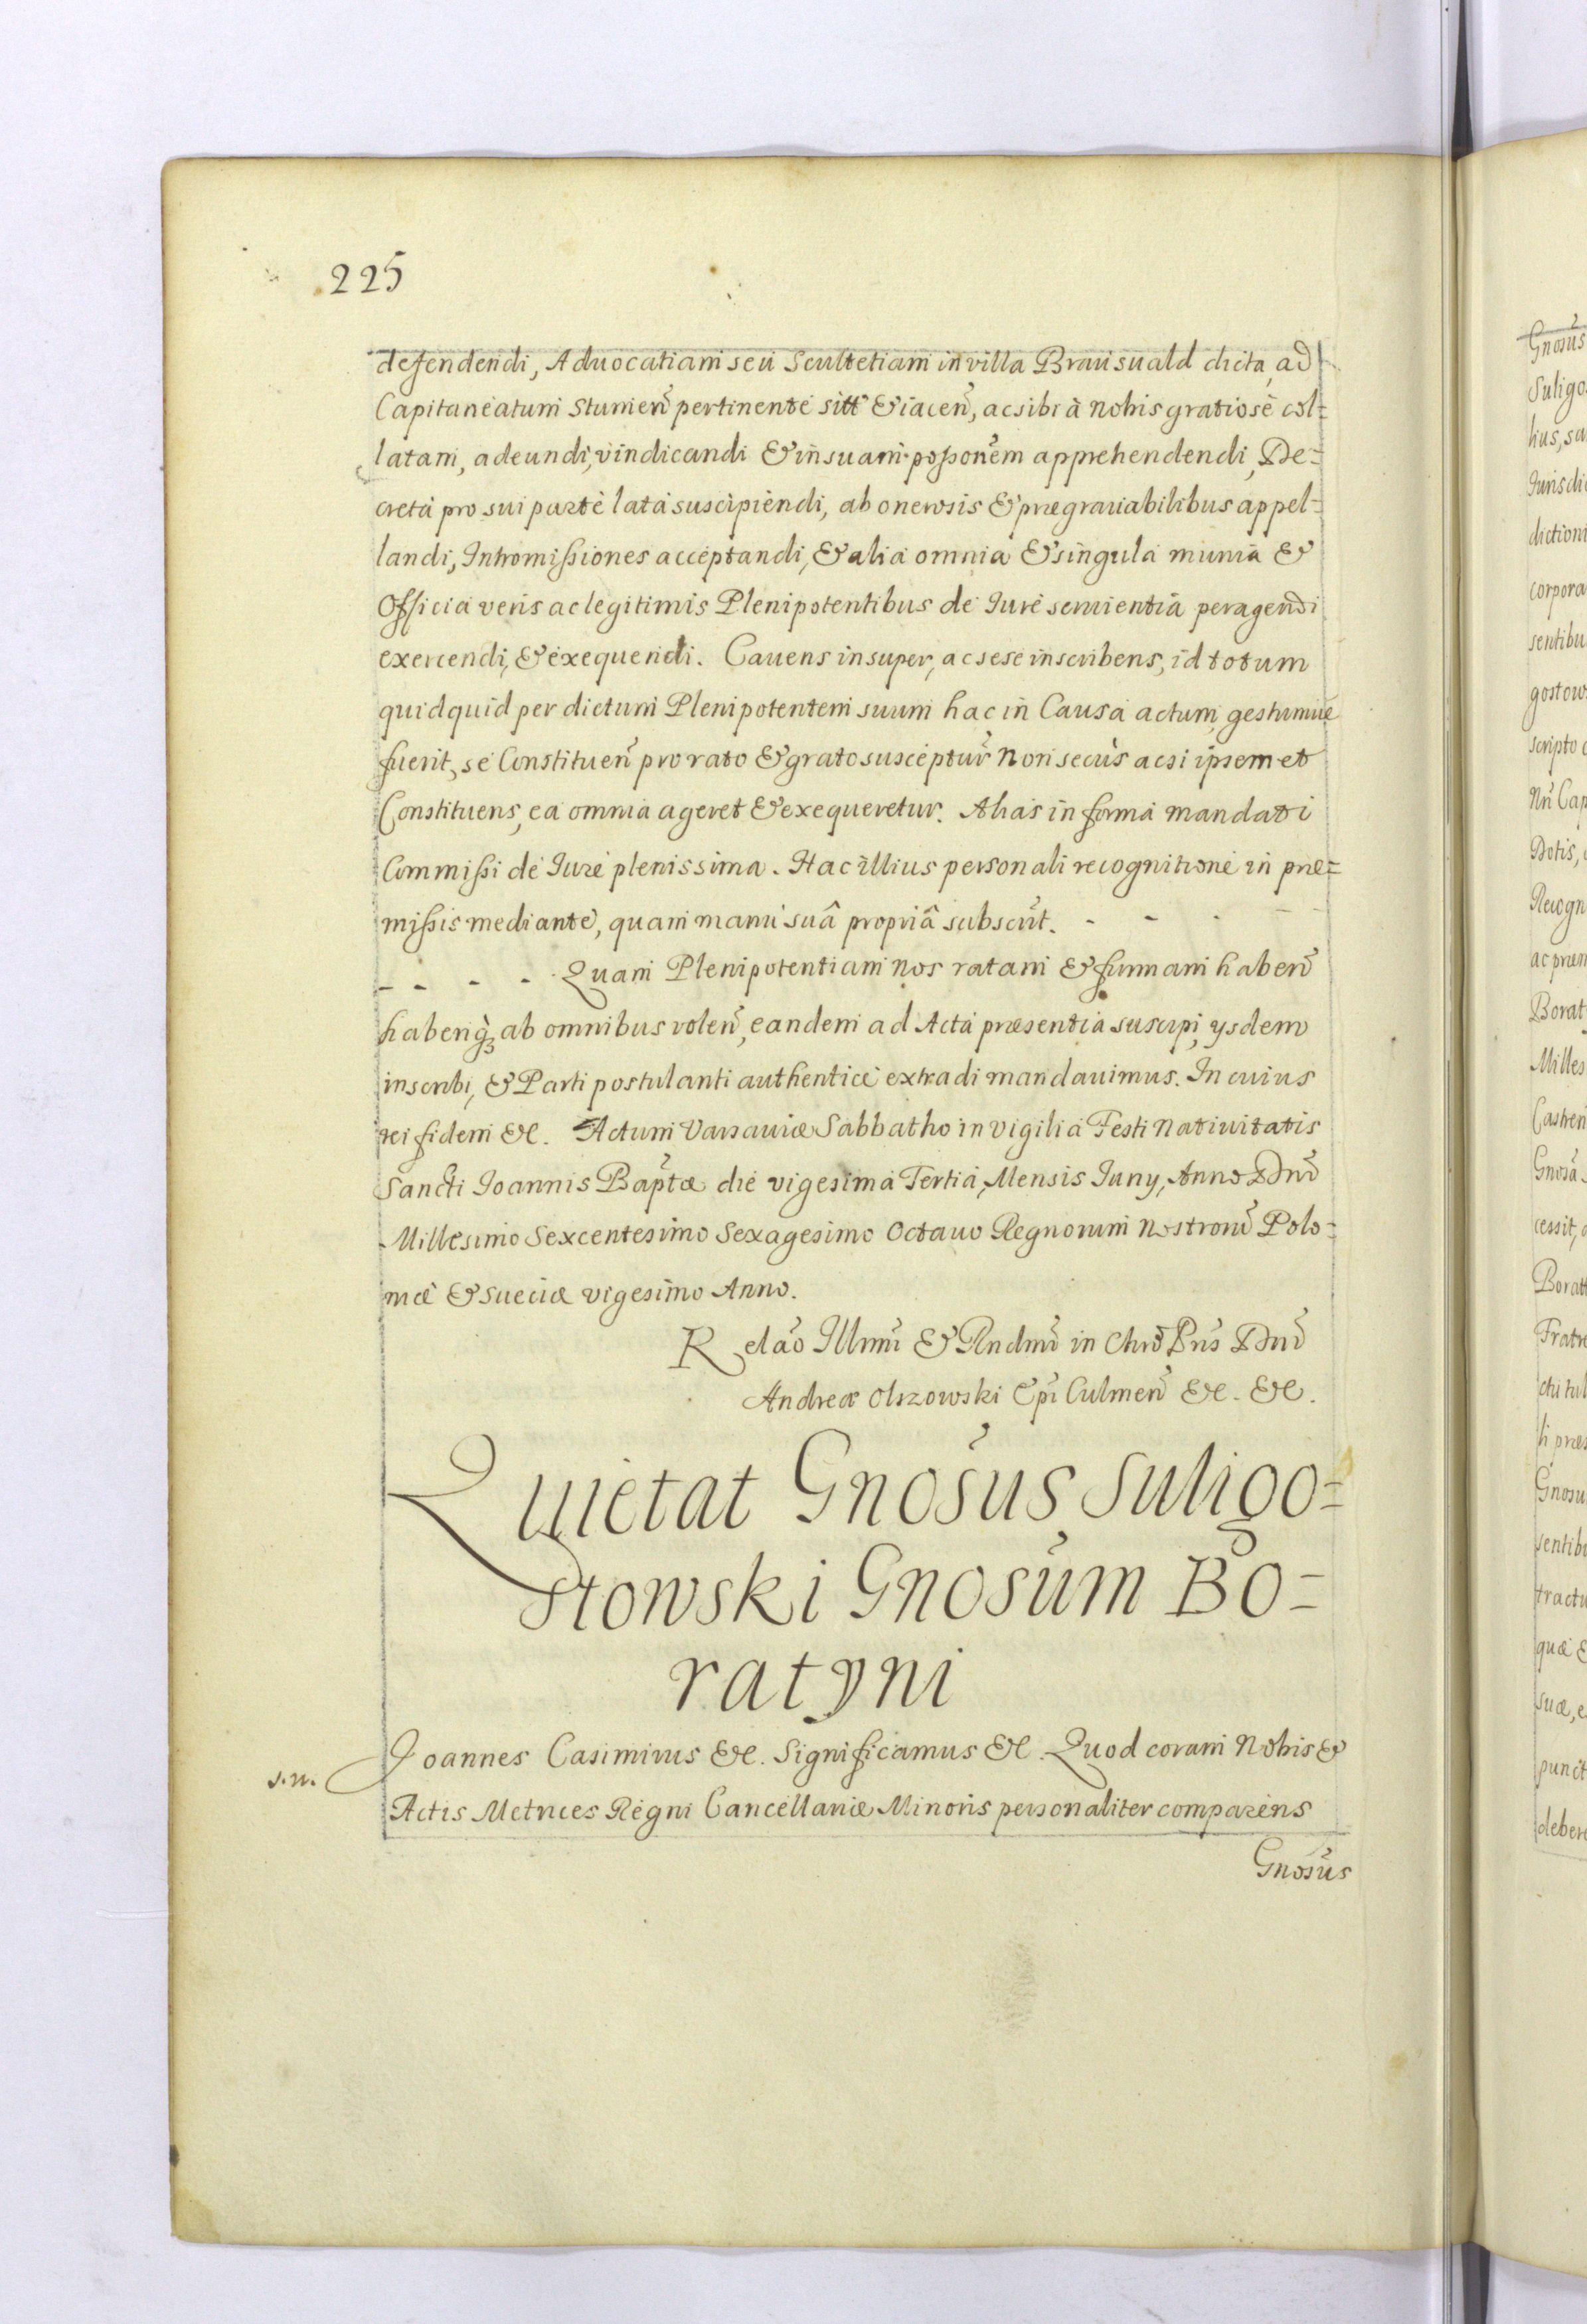 225
defendendi, Aduocatiam seu Scultetiam in villa Brausuald dicta, ad
Capitaneatum Stumeñ pertinente sitt & iaceñ, ac sibi à nobis gratiosè col=
latam, adeundi, vindicandi & in suam possonem apprehendendi, De=
creta pro sui parte lata suscipiendi, ab onerosis & prægrauabilibus appel=
landi, Intromissiones acceptandi, & alia omnia & singula munia &
Officia veris ac legitimis Plenipotentibus de Iure seruientia peragendi
exercendi, & exequendi. Cauens insuper, ac sese inscribens, id totum
quidquid per dictum Plenipotentem suum hac in Causa actum, gestumue
fuerit, se Constitueñ pro rato & grato susceptur̃ non secùs acsi ipsemet
Constituens, ea omnia ageret & exequeretur. Alias in forma mandati
Commissi de Iure plenissima. Hac illius personali recognitione in præ=
missis mediante, quam manu suâ propriâ subscr̃t. - - - - -
- - - - Quam Plenipotentiam nos ratam & firmam habeñ
haberiq; ab omnibus voleñ, eandem ad Acta præsentia suscipi, ysdem
inscribi, & Parti postulanti authenticè extradi mandauimus. In cuius
rei fidem &c. Actum Varsauiæ Sabbatho in vigilia Festi Natiuitatis
Sancti Ioannis Bapt̃æ die vigesima Tertia, Mensis Iuny, Anno Dñi
Millesimo Sexcentesimo Sexagesimo Octauo Regnorum Nostrorũ Polo=
niæ & Sueciæ vigesimo Anno.
Relão Illmi & Rndmi in Chrõ Pris Dñi
Andreæ Olszowski Epĩ Culmeñ &c. &c.
Quietat Gnosus Suligo=
stowski Gnosum Bo=
ratyni
s.n. Joannes Casimirus &c. Significamus &c. Quod coram Nobis &
Actis Metrices Regni Cancellariæ Minoris personaliter comparens
Gnosus
Gnosus